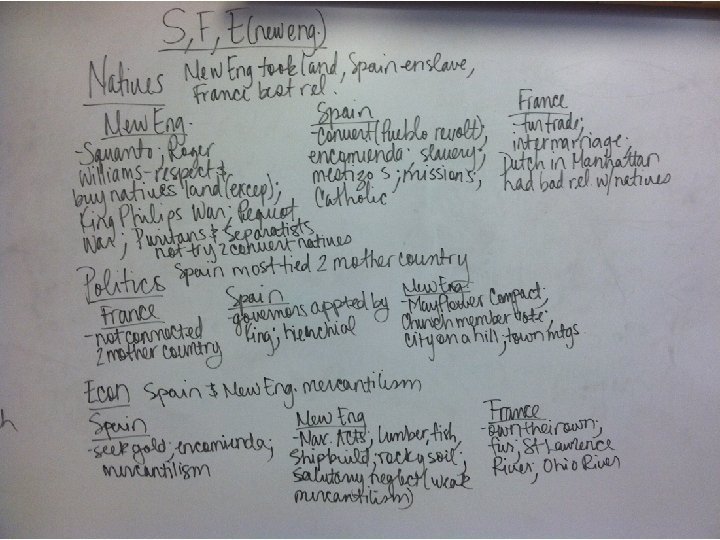 S, F, E (new eng.)
Natives New Eng took land, Spain-enslave,
France best rel.
New Eng.
-Squanto; Roger
Williams-respect &
buy natives land (excep);
King Philips War; Pequot
War; Puritans & Separatists
not try 2 convert natives
Spain
-convert (Pueblo revolt);
encomienda; slavery;
mestizos; missions;
Catholic
France
-fur trade;
intermarriage;
Dutch in Manhattan
had bad rel w/natives
Politics Spain most tied 2 mother country
France
-not connected
2 mother country
Spain
-governors appted by
King; hierchial
New Eng.
-Mayflower Compact;
Church member vote;
city on a hill; town mtgs.
Econ Spain & New Eng. mercantilism
Spain
-seek gold; encomienda;
mercantilism
New Eng
-Nav. Acts; lumber, fish,
shipbuild; rocky soil;
salutary neglect (weak
mercantilism)
France
-own their own;
fur; St Lawrence
River; Ohio River